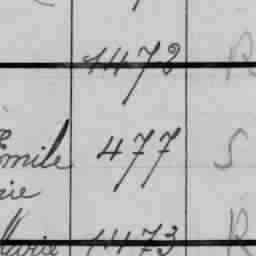 1472 R
Emile 477 S
rie
Marie 1473 R